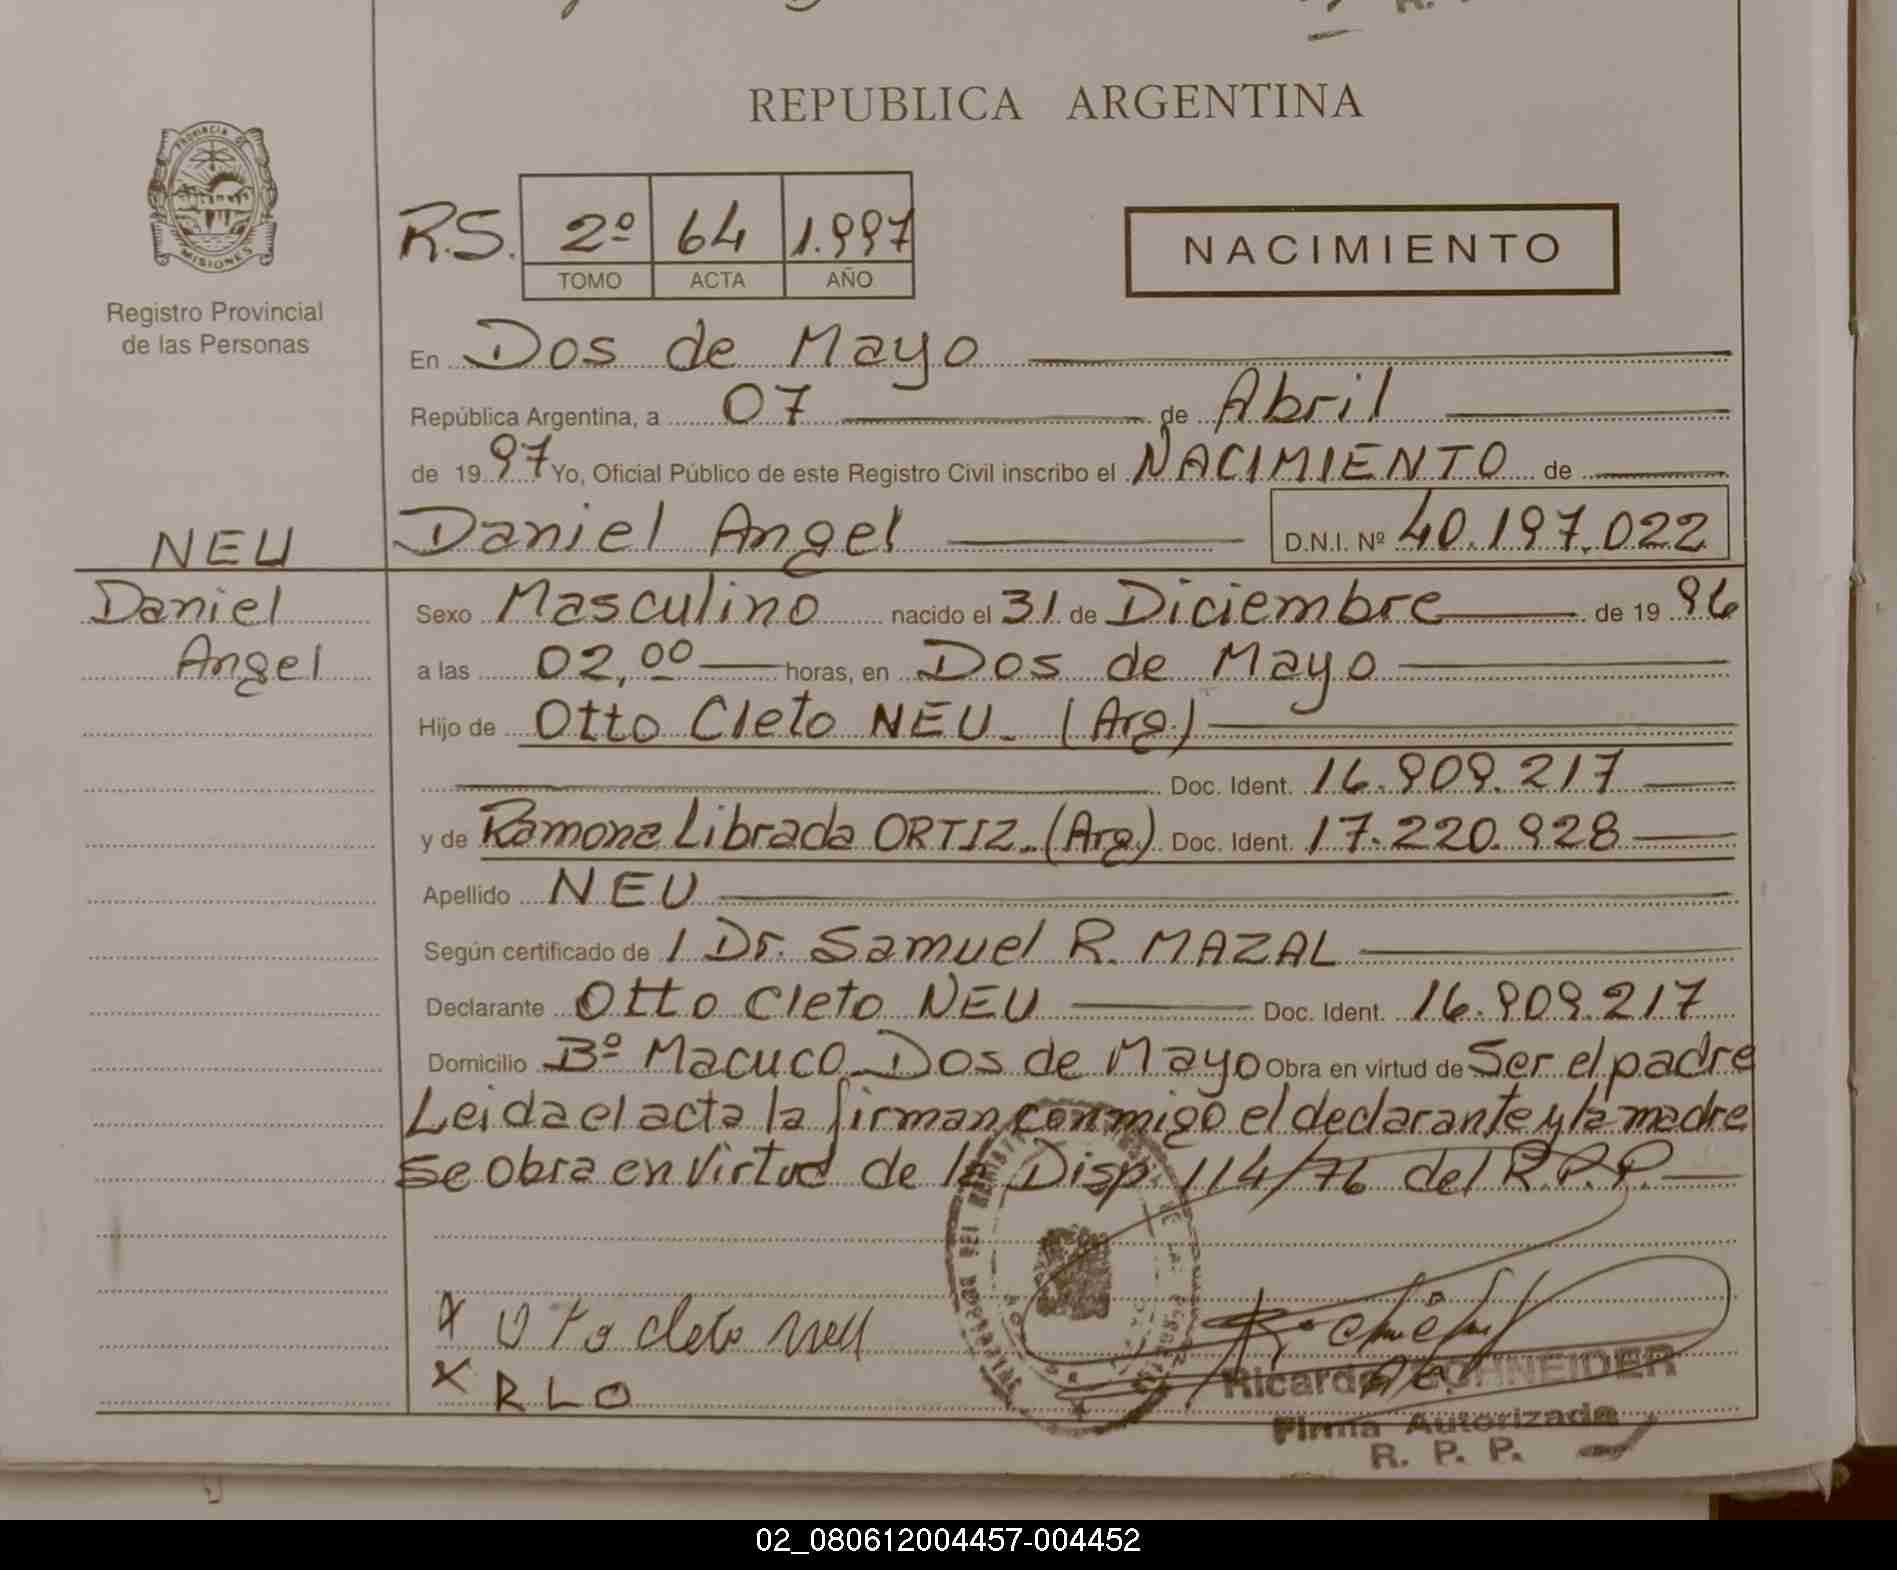 REPUBLICA ARGENTINA
PROVINCIA DE
MISIONES
Registro Provincial
de las Personas
R.S. 2º 64 1.997
TOMO ACTA AÑO
NACIMIENTO
En Dos de Mayo
República Argentina, a 07 de Abril
de 1997 Yo, Oficial Público de este Registro Civil inscribo el NACIMIENTO de
NEU
Daniel Angel D.N.I. Nº 40.197.022
Daniel
Angel
Sexo Masculino nacido el 31 de Diciembre de 1996
a las 02,00 horas, en Dos de Mayo
Hijo de Otto Cleto NEU_ (Arg.)
Doc. Ident. 16.909.217
y de Ramona Librada ORTIZ_ (Arg.) Doc. Ident. 17.220.928
Apellido NEU
Según certificado de 1 Dr. Samuel R. MAZAL
Declarante Otto Cleto NEU Doc. Ident. 16.909.217
Domicilio Bº Macuco_Dos de Mayo Obra en virtud de Ser el padre
Leida el acta la firman conmigo el declarante y la madre
se obra en virtud de la Disp 114/76 del R.P.P.
x Otto cleto neu
x RLO
Ricardo SCHNEIDER
Firma Autorizada
R. P. P.
02_080612004457-004452